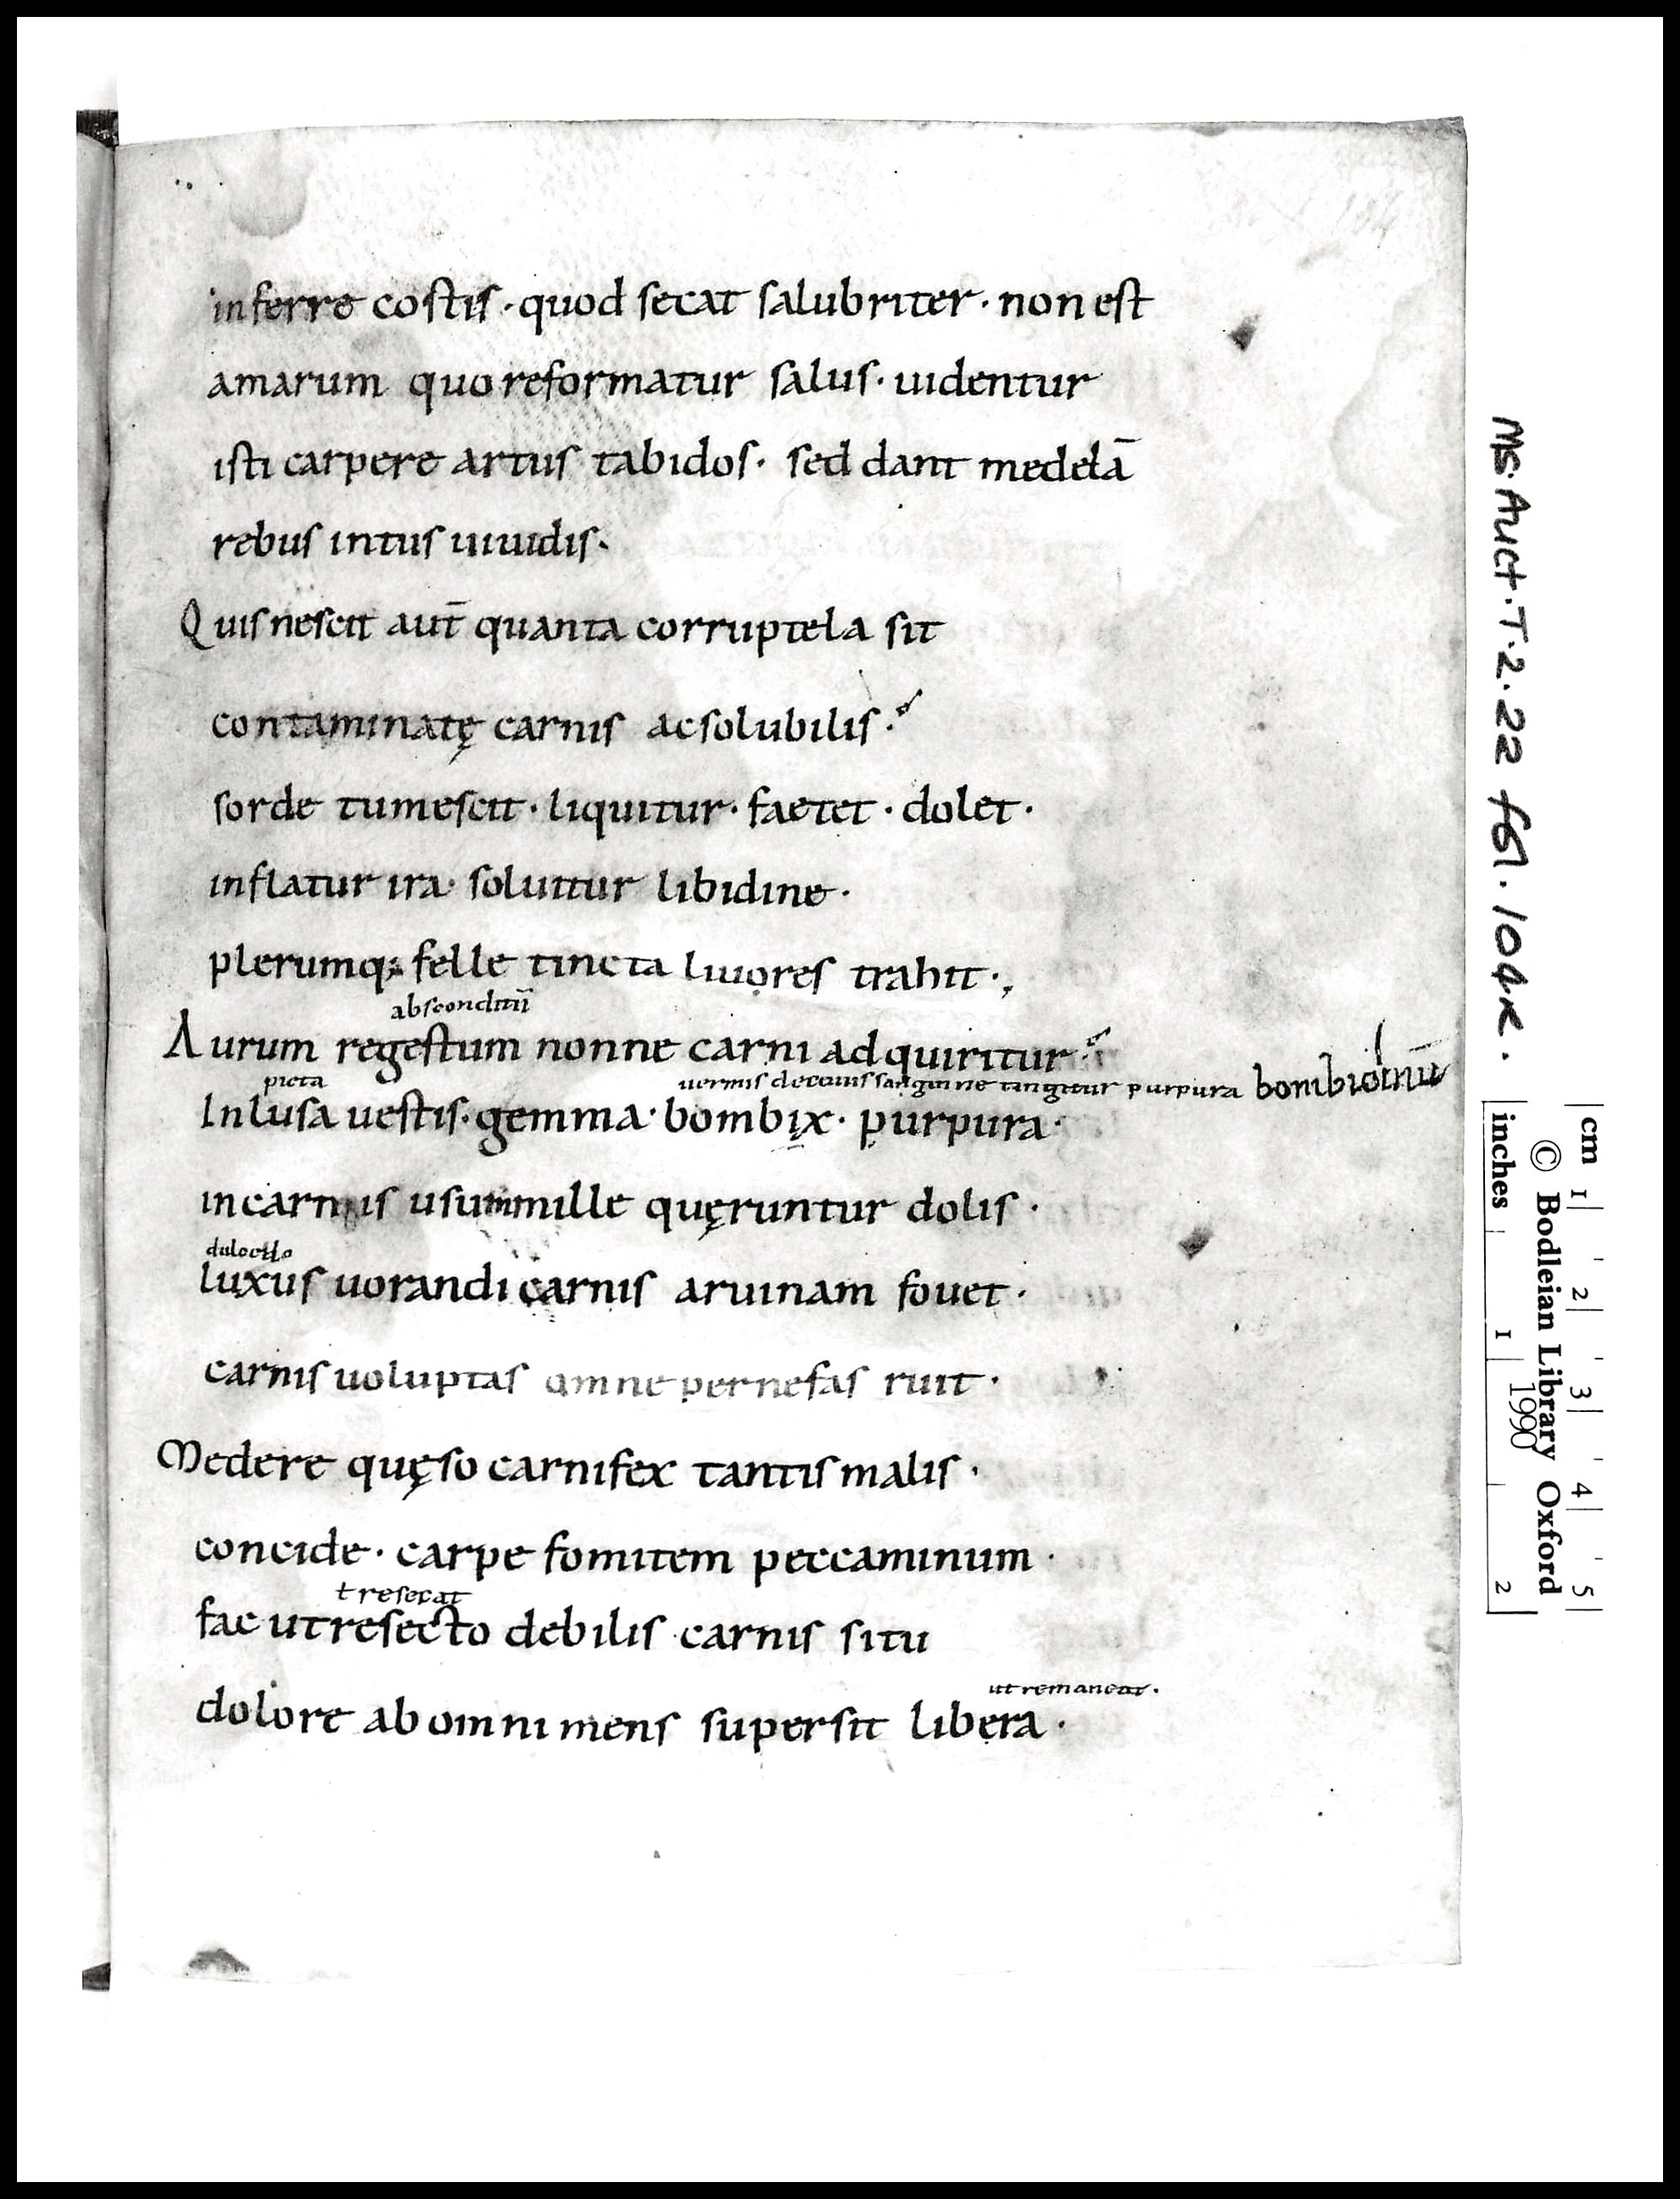 inferre costis · quod secat salubriter · non est
amarum quo reformatur salus · uidentur
isti carpere artus tabidos · sed dant medelā
rebus intus uiuidis ·
Quis nescit aut̄ quanta corruptela sit
contaminatę carnis ac solubilis ·
sorde tumescit · liquitur · faetet · dolet ·
inflatur ira · soluitur libidine ·
plerumq; felle tincta liuores trahit ·,
absconditū
Aurum regestum nonne carni adquiritur
picta uermis de cuius sanguine tingitur purpura
Inlusa uestis · gemma · bombix · purpura ·
in carnis usum mille quęruntur dolis ·
luxus uorandi carnis aruinam fouet ·
carnis uoluptas omne per nefas ruit ·
Medere quęso carnifex tantis malis ·
concide · carpe fomitem peccaminum ·
ł resecat
fac ut resecto debilis carnis situ
ut remaneat ·
dolore ab omni mens supersit libera ·
MS. Auct. T. 2. 22 fol. 104R.
cm 1 2 3 4 5
© Bodleian Library Oxford
1990
inches 1 2